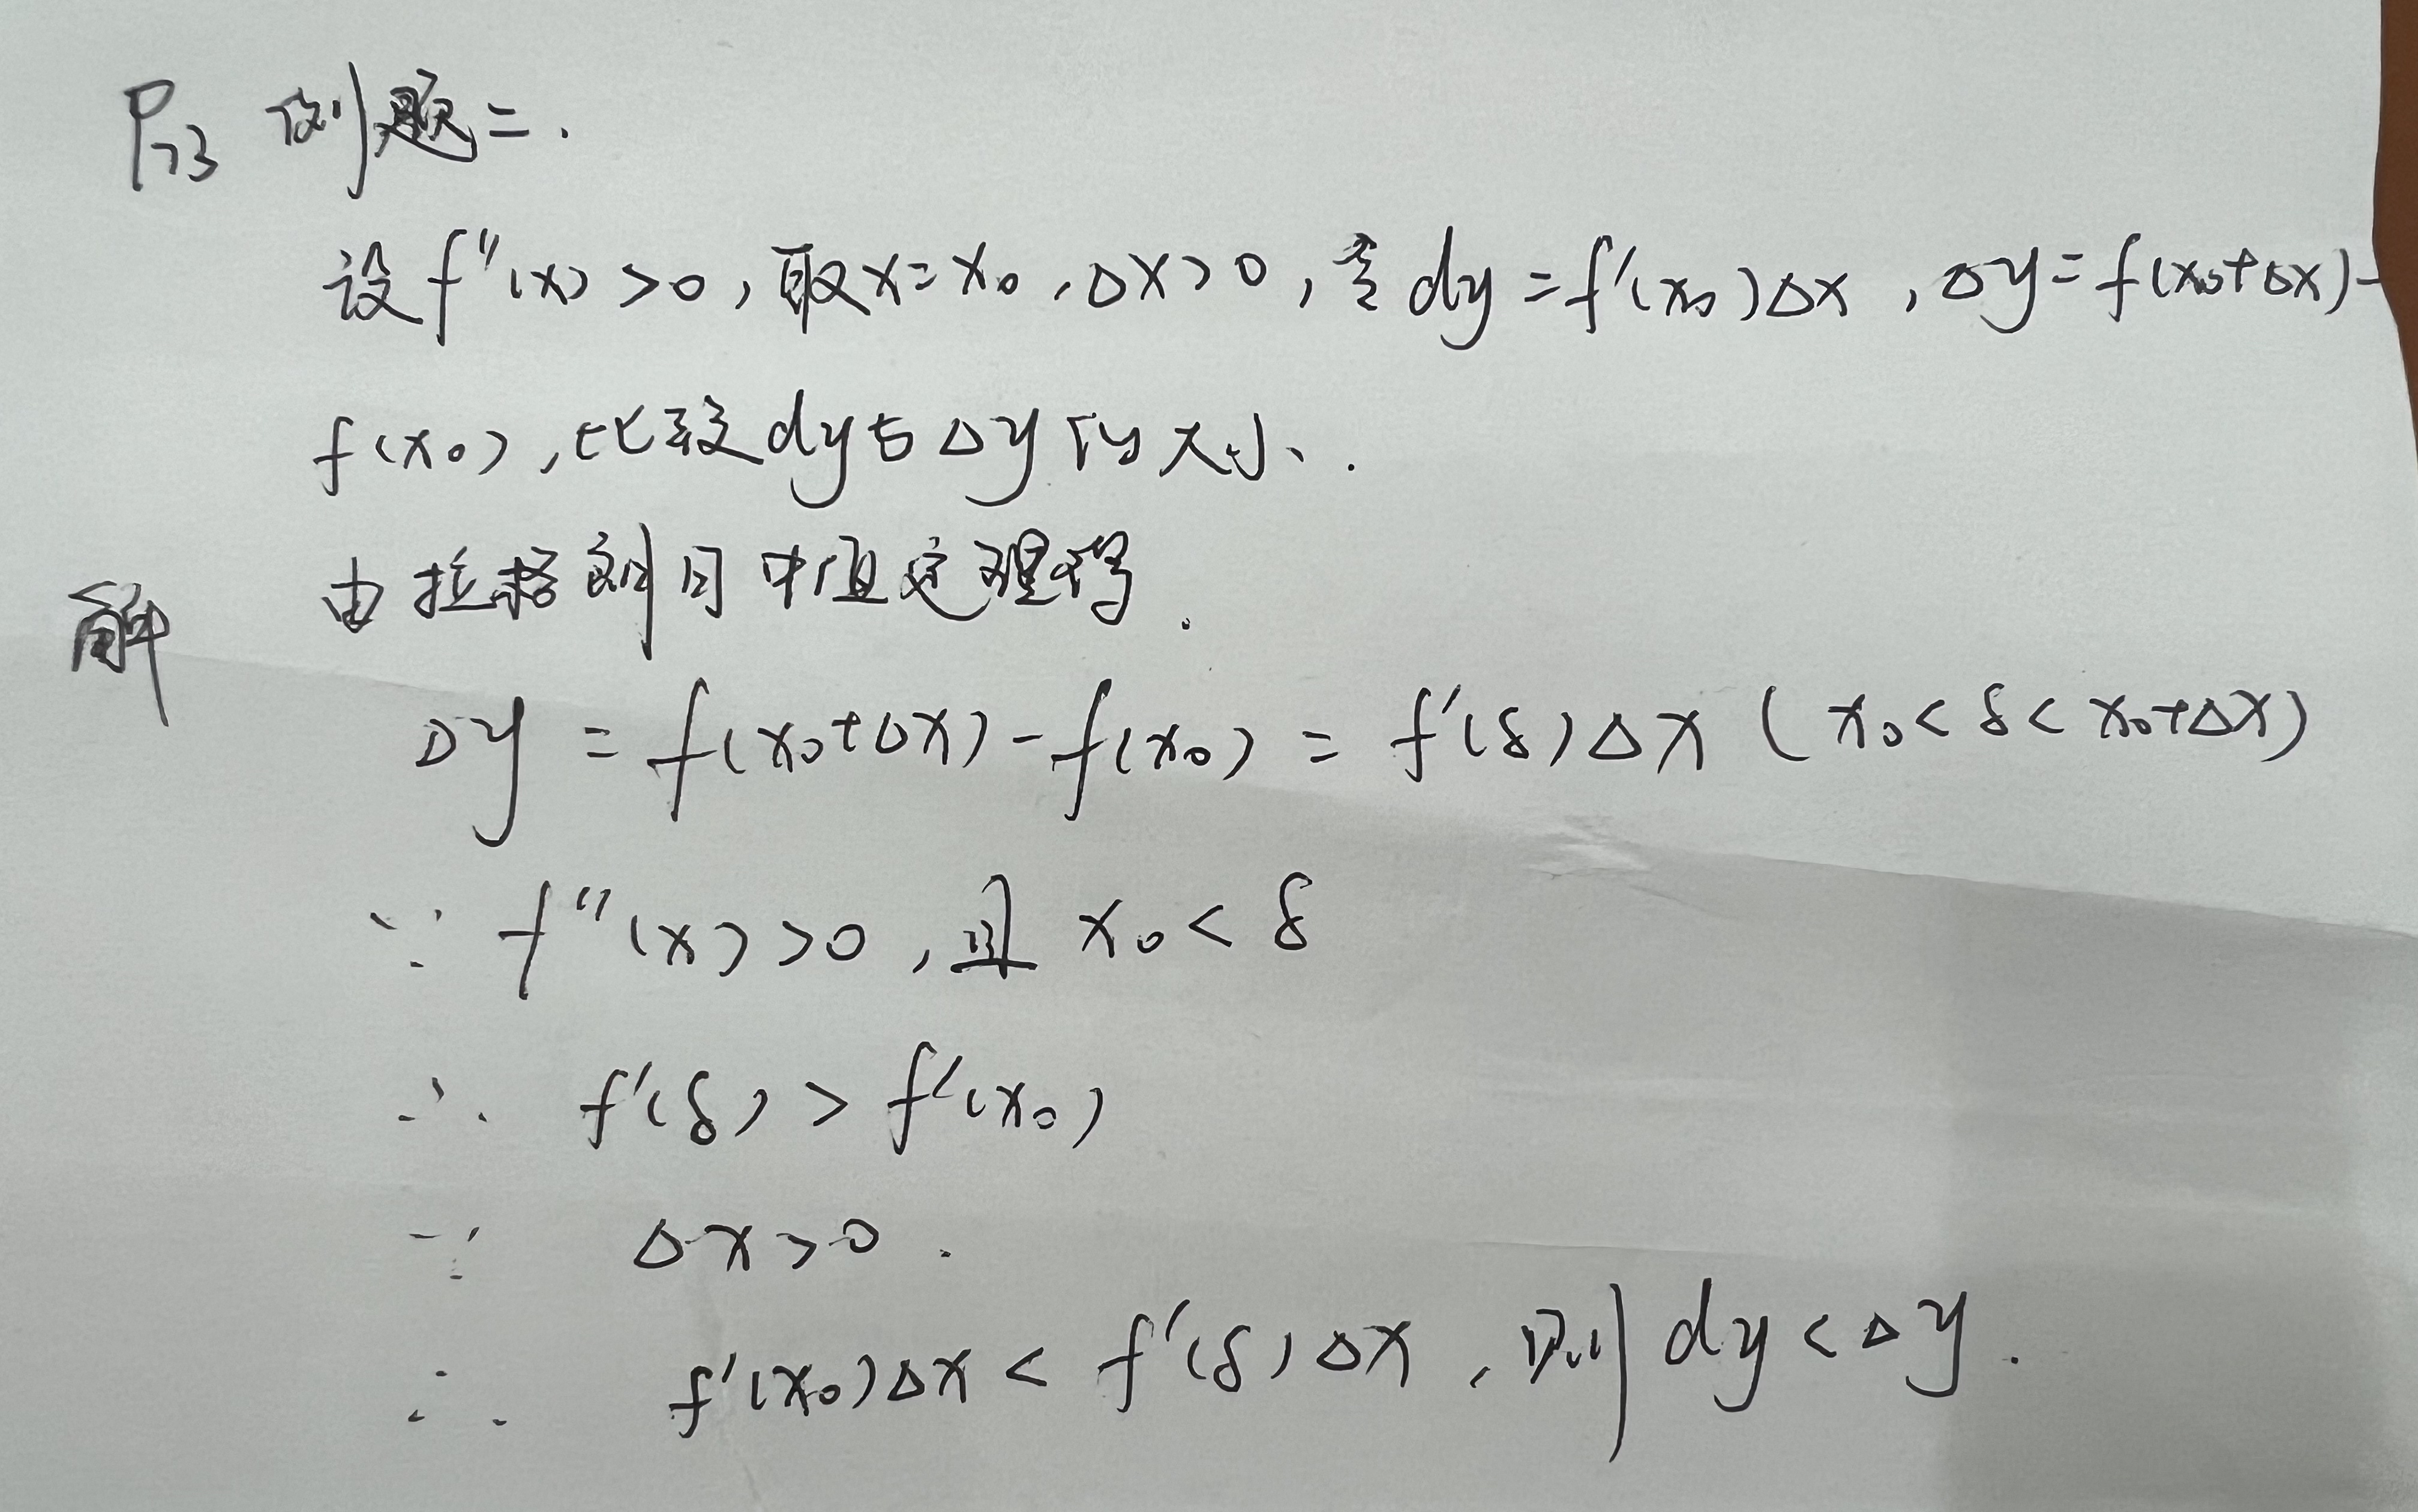 P73 例题二.
设f''(x)>0,取x=x₀,Δx>0,令dy=f'(x₀)Δx,Δy=f(x₀+Δx)-
f(x₀),比较dy与Δy的大小.
解 由拉格朗日中值定理得.
Δy=f(x₀+Δx)-f(x₀)=f'(δ)Δx (x₀<δ<x₀+Δx)
∵ f''(x)>0,且 x₀<δ
∴ f'(δ)>f'(x₀)
∵ Δx>0.
∴ f'(x₀)Δx<f'(δ)Δx,则dy<Δy.